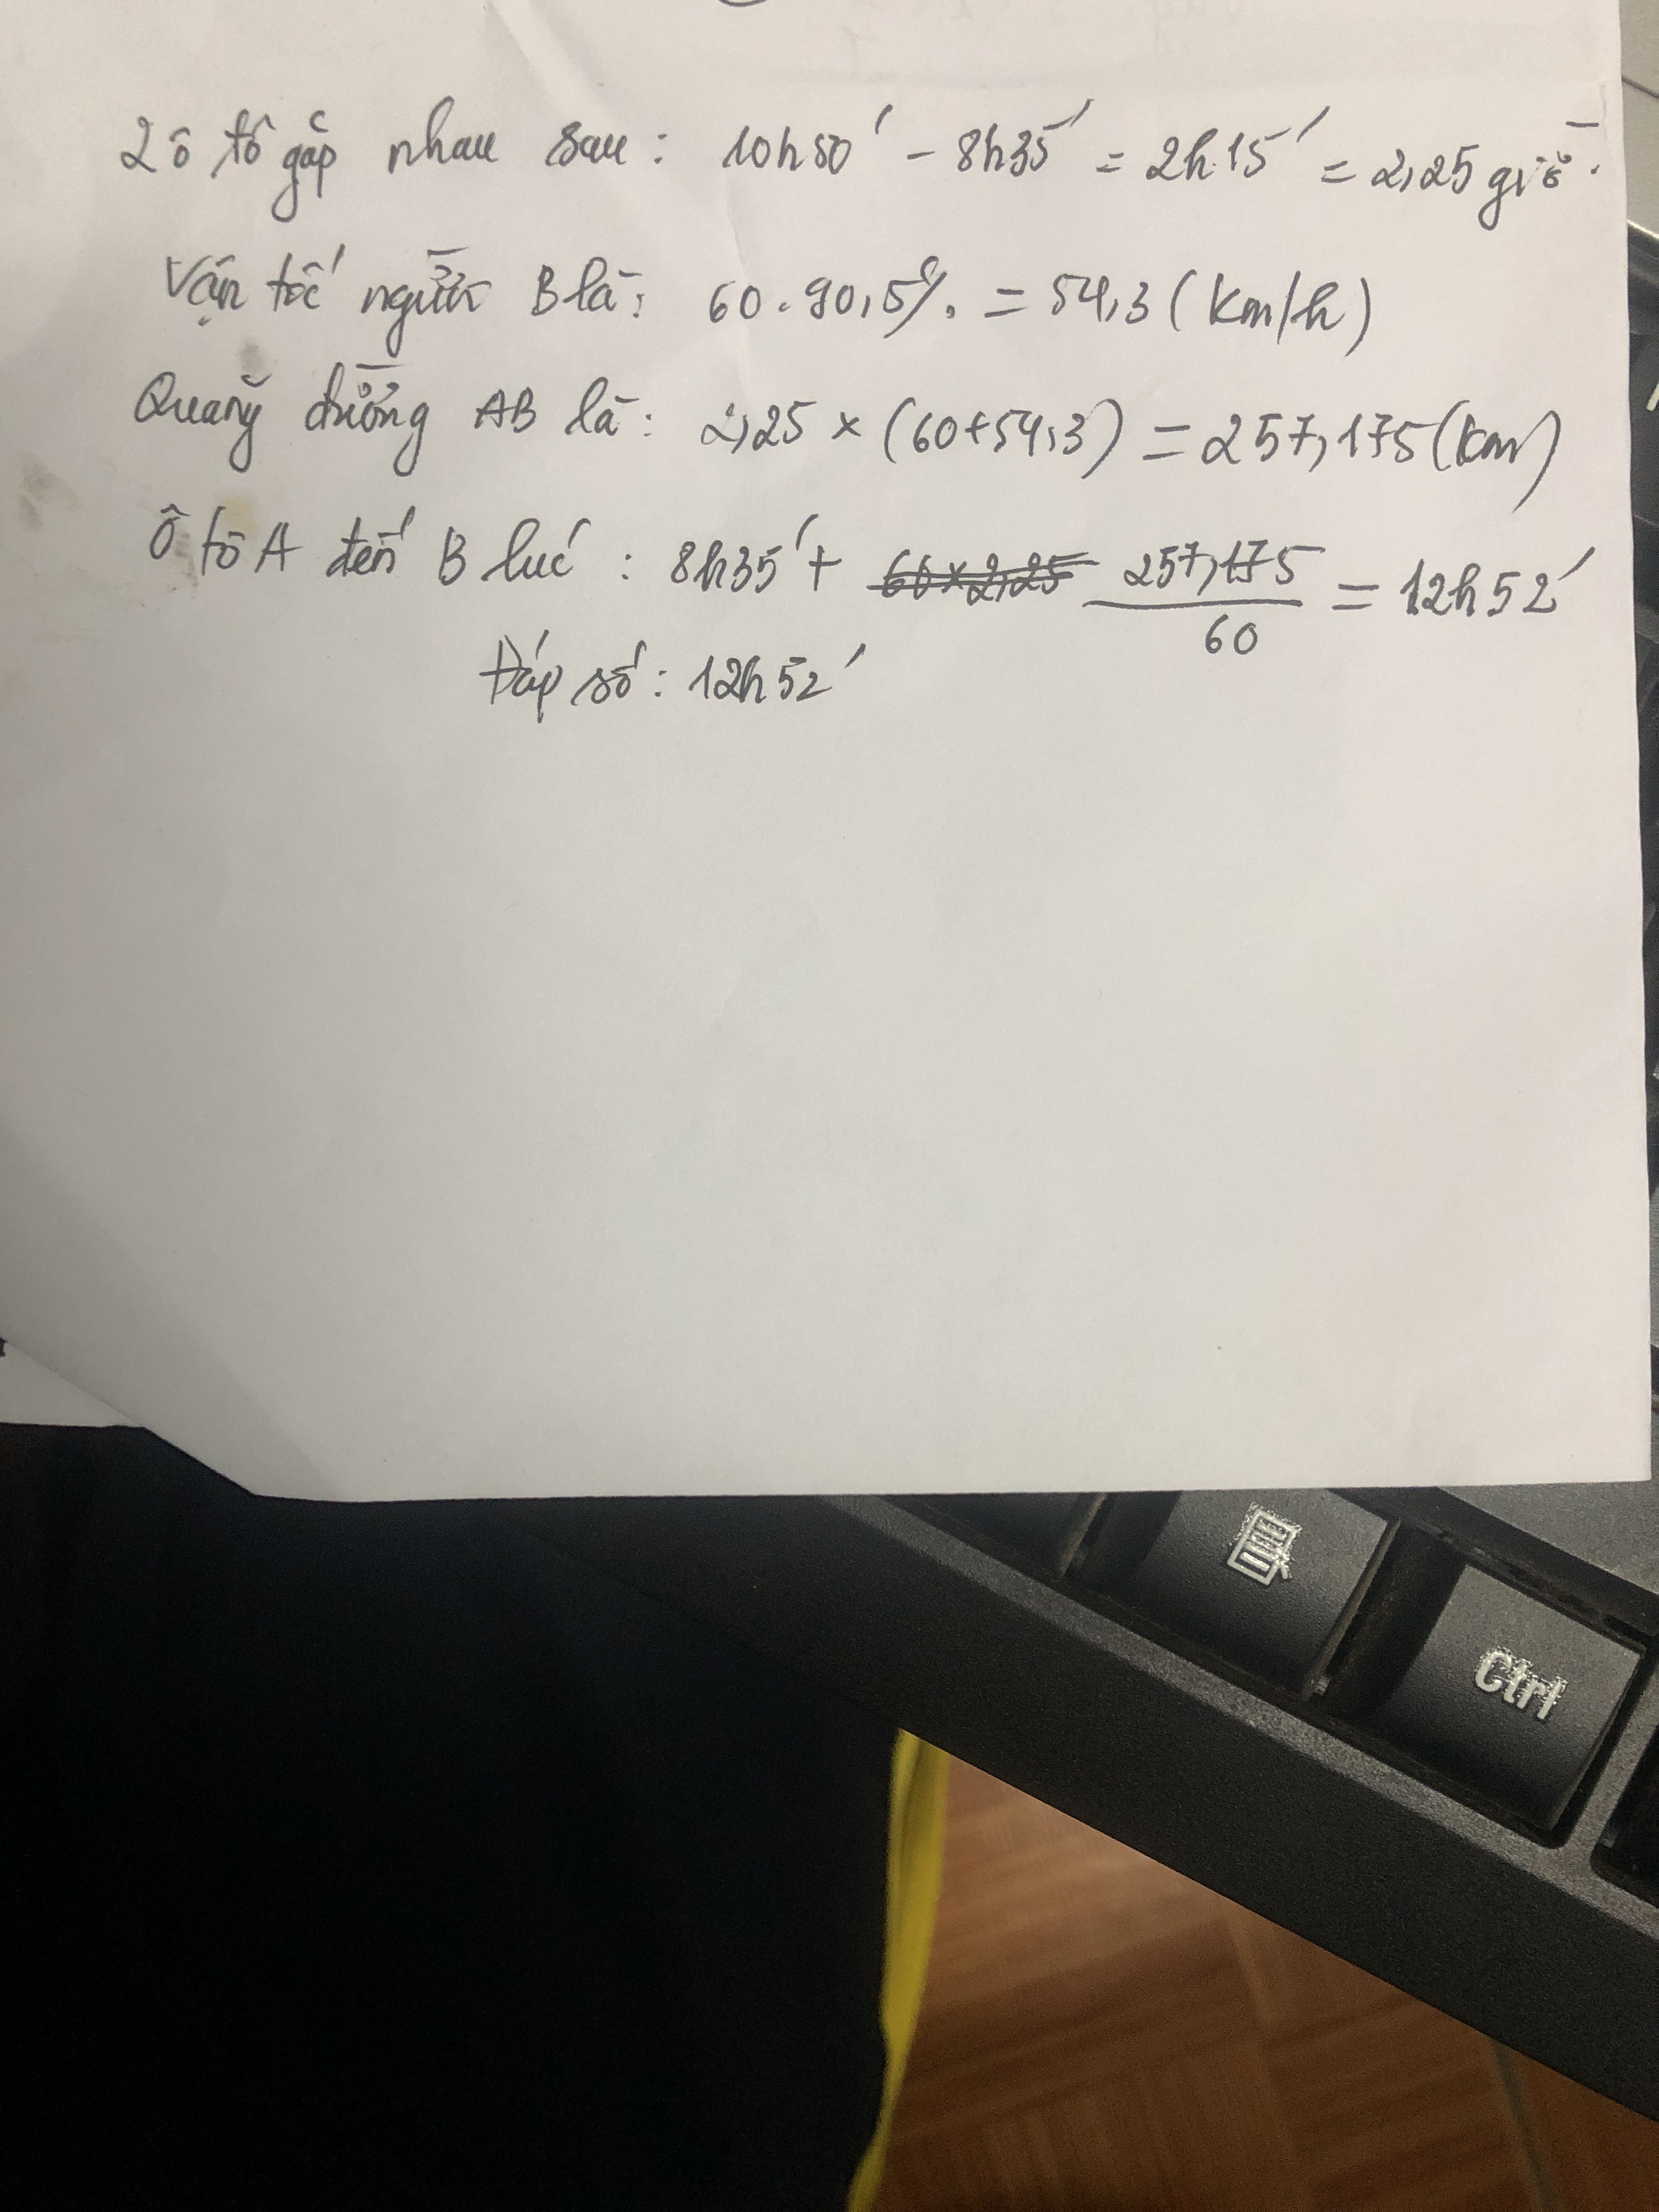 2 ô tô gặp nhau sau: 10h50' - 8h35' = 2h15' = 2,25 giờ.
Vận tốc người B là: 60.90,5% = 54,3 (km/h)
Quãng đường AB là: 2,25 × (60+54,3) = 257,175 (km)
Ô tô A đến B lúc: 8h35' + 60×2,25 257,175/60 = 12h52'
Đáp số: 12h52'
Ctrl